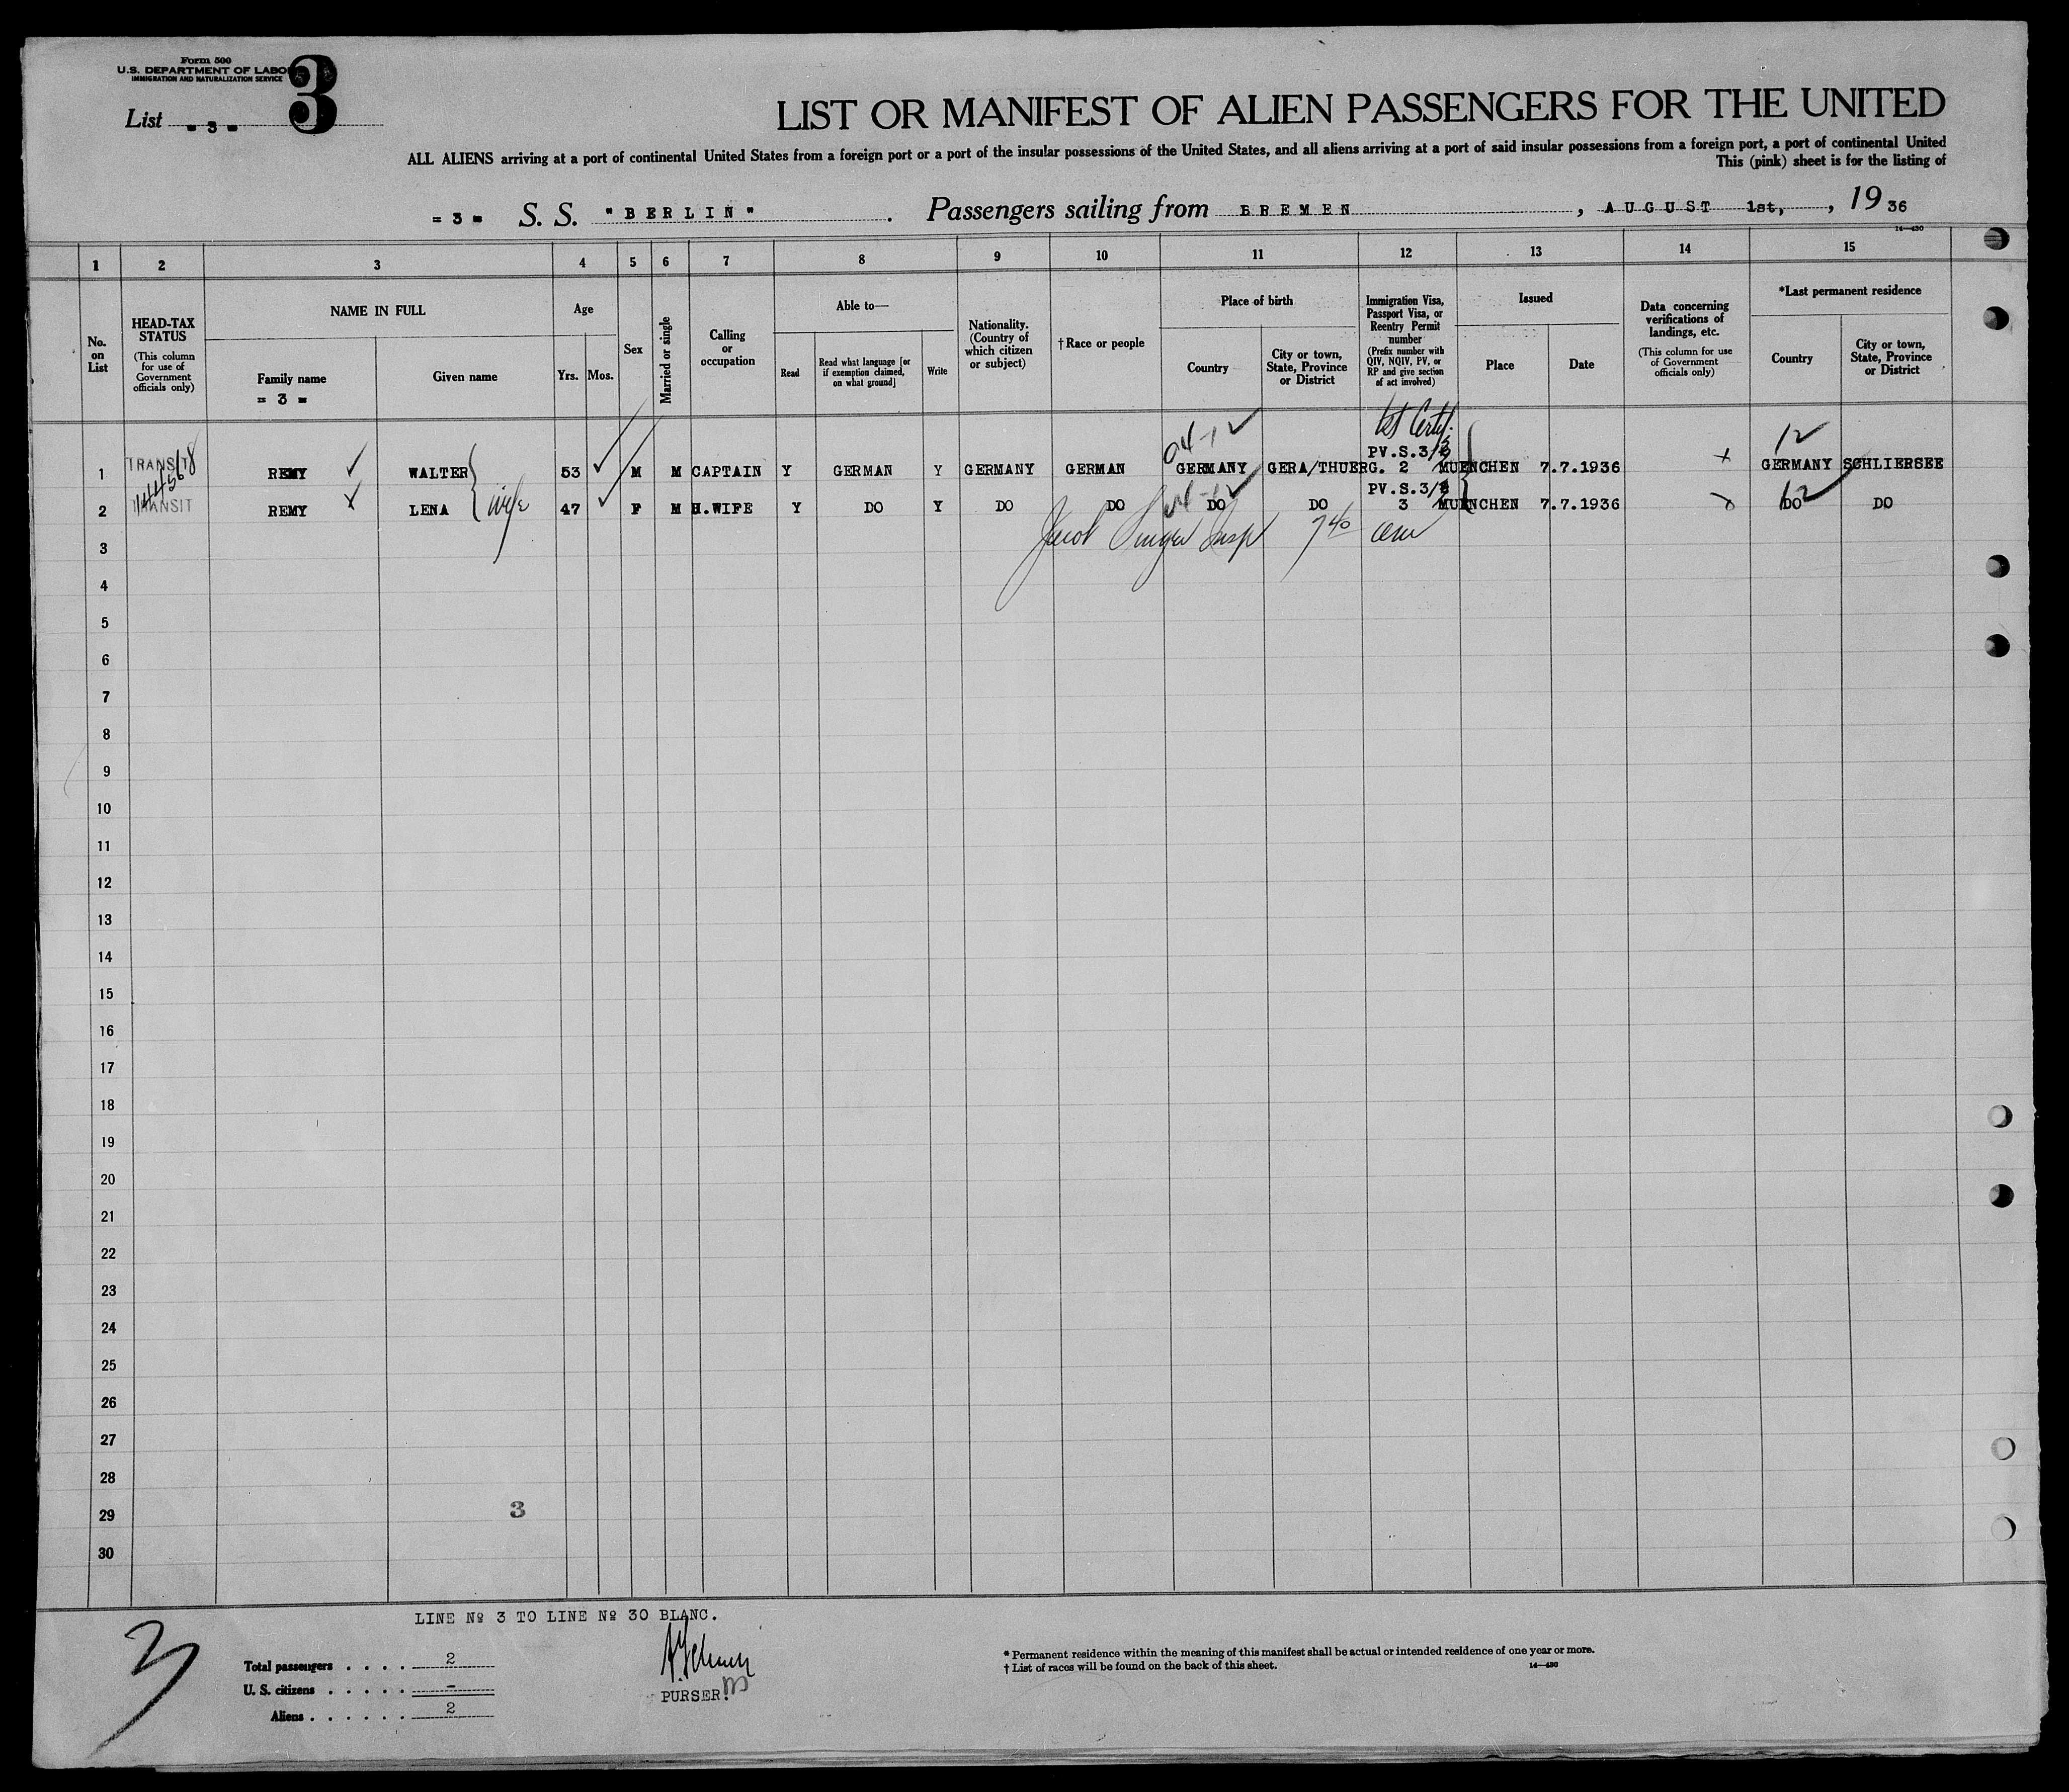 Form 500
U.S. DEPARTMENT OF LABO
IMMIGRATION AND NATURALIZATION SERVICE
3
List = 3 =
LIST OR MANIFEST OF ALIEN PASSENGERS FOR THE UNITED
ALL ALIENS arriving at a port of continental United States from a foreign port or a port of the insular possessions of the United States, and all aliens arriving at a port of said insular possessions from a foreign port, a port of continental United
This (pink) sheet is for the listing of
= 3 = S. S. "BERLIN". Passengers sailing from BREMEN, AUGUST 1st, , 19 36
14—430
1 2 3 4 5 6 7 8 9 10 11 12 13 14 15
No. on List
HEAD-TAX STATUS
(This column for use of Government officials only)
NAME IN FULL
Family name
= 3 =
Given name
Age
Yrs. Mos.
Sex
Married or single
Calling or occupation
Able to—
Read
Read what language [or if exemption claimed, on what ground]
Write
Nationality. (Country of which citizen or subject)
† Race or people
Place of birth
Country
City or town, State, Province or District
Immigration Visa, Passport Visa, or Reentry Permit number
(Prefix number with QIV, NQIV, PV, or RP and give section of act involved)
Issued
Place
Date
Data concerning verifications of landings, etc.
(This column for use of Government officials only)
*Last permanent residence
Country
City or town, State, Province or District
04-12 12
PV.S.3/
1 TRANSIT REMY WALTER 53 M M CAPTAIN Y GERMAN Y GERMANY GERMAN GERMANY GERA/THUERG. 2 MUENCHEN 7.7.1936 GERMANY SCHLIERSEE
PV.S.3/
2 TRANSIT REMY LENA wife 47 F M H.WIFE Y DO Y DO DO DO DO 3 MUENCHEN 7.7.1936 DO DO
Jacob Singer Insp 7 40 am
3
4
5
6
7
8
9
10
11
12
13
14
15
16
17
18
19
20
21
22
23
24
25
26
27
28
29
3
30
LINE Nº 3 TO LINE Nº 30 BLANC.
3
Total passengers . . . . 2
U. S. citizens . . . . . –
Aliens . . . . . . 2
PURSER.
* Permanent residence within the meaning of this manifest shall be actual or intended residence of one year or more.
† List of races will be found on the back of this sheet.
14—430